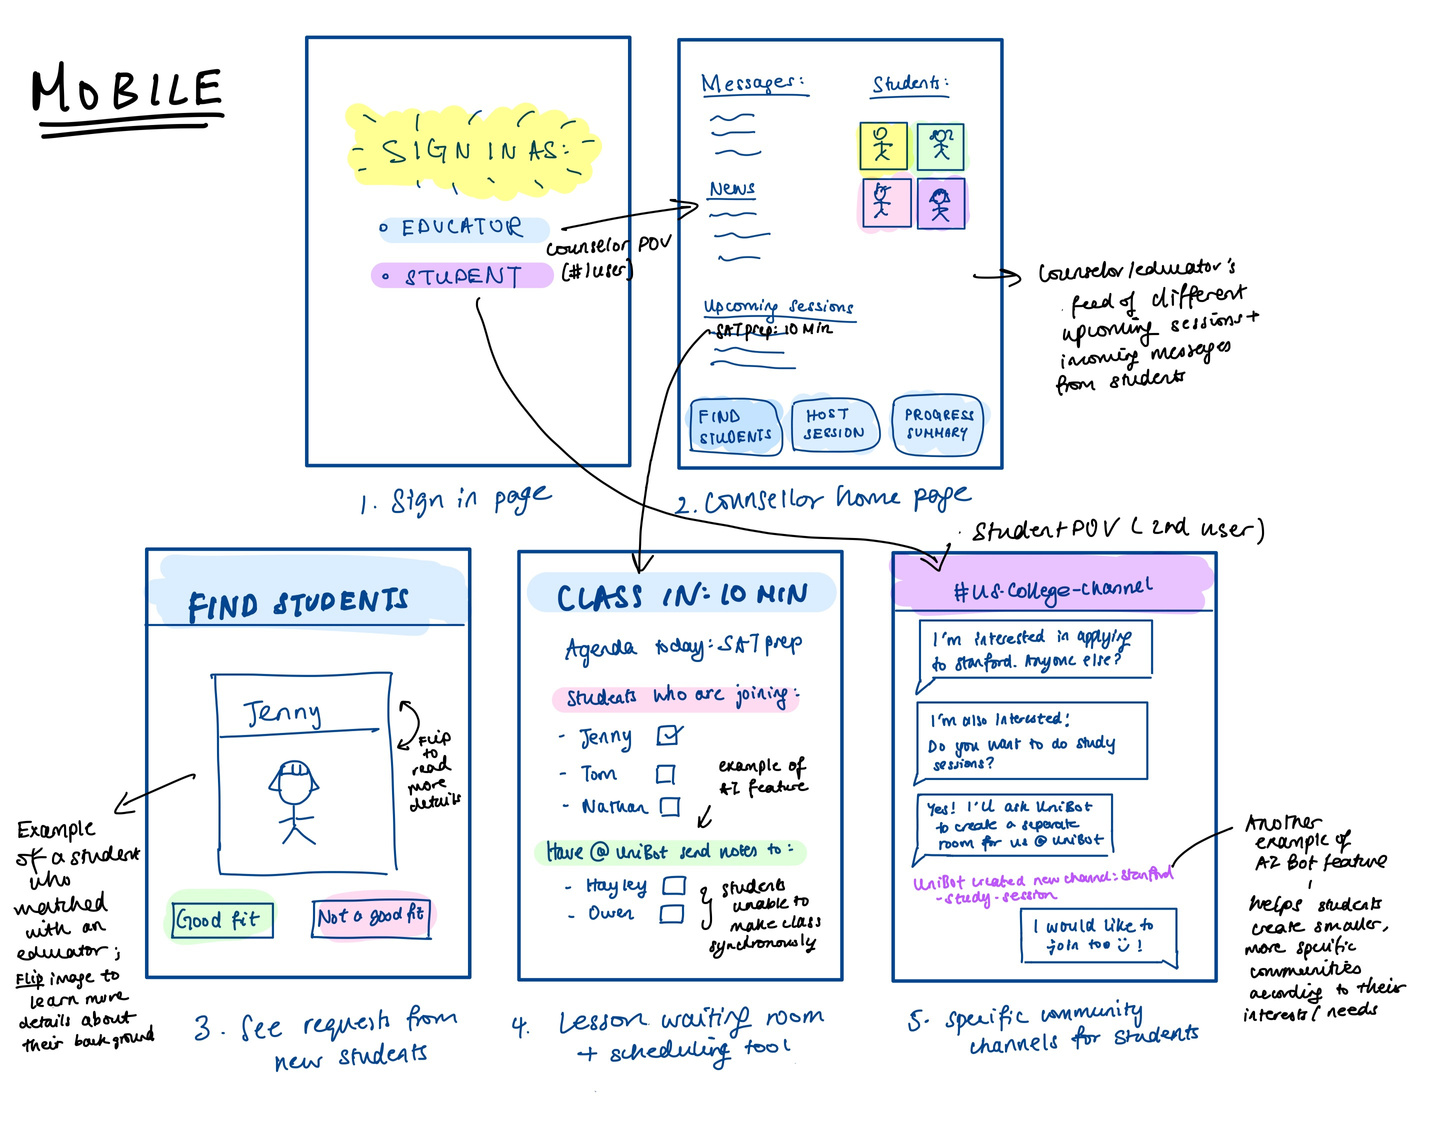 MOBILE
SIGN IN AS:
EDUCATOR
STUDENT
Counselor POV
(#1user)
1. Sign in page
Messages:
Students:
News
Upcoming sessions
- SAT prep: 10 Min
FIND
STUDENTS
HOST
SESSION
PROGRESS
SUMMARY
2. Counsellor home page
Counselor/educator's
feed of different
upcoming sessions +
incoming messages
from students
FIND STUDENTS
Jenny
Flip
to
read
more
details
Good fit
Not a good fit
Example
of a student
who
matched
with an
educator;
Flip image to
learn more
details about
their background
3. See requests from
new students
CLASS IN: 10 MIN
Agenda today: SAT prep
Students who are joining:
- Jenny
- Tom
- Nathan
example of
AI feature
Have @ UniBot send notes to:
- Hayley
- Owen
students
unable to
make class
synchronously
4. Lesson waiting room
+ scheduling tool
· Student POV (2nd user)
#US-College-channel
I'm interested in applying
to stanford. Anyone else?
I'm also interested!
Do you want to do study
sessions?
Yes! I'll ask UniBot
to create a separate
room for us @ UniBot
UniBot created new channel: stanford
-study-session
I would like to
join too !
Another
example of
AI Bot feature
helps students
create smaller,
more specific
communities
according to their
interests/needs
5. Specific community
channels for students